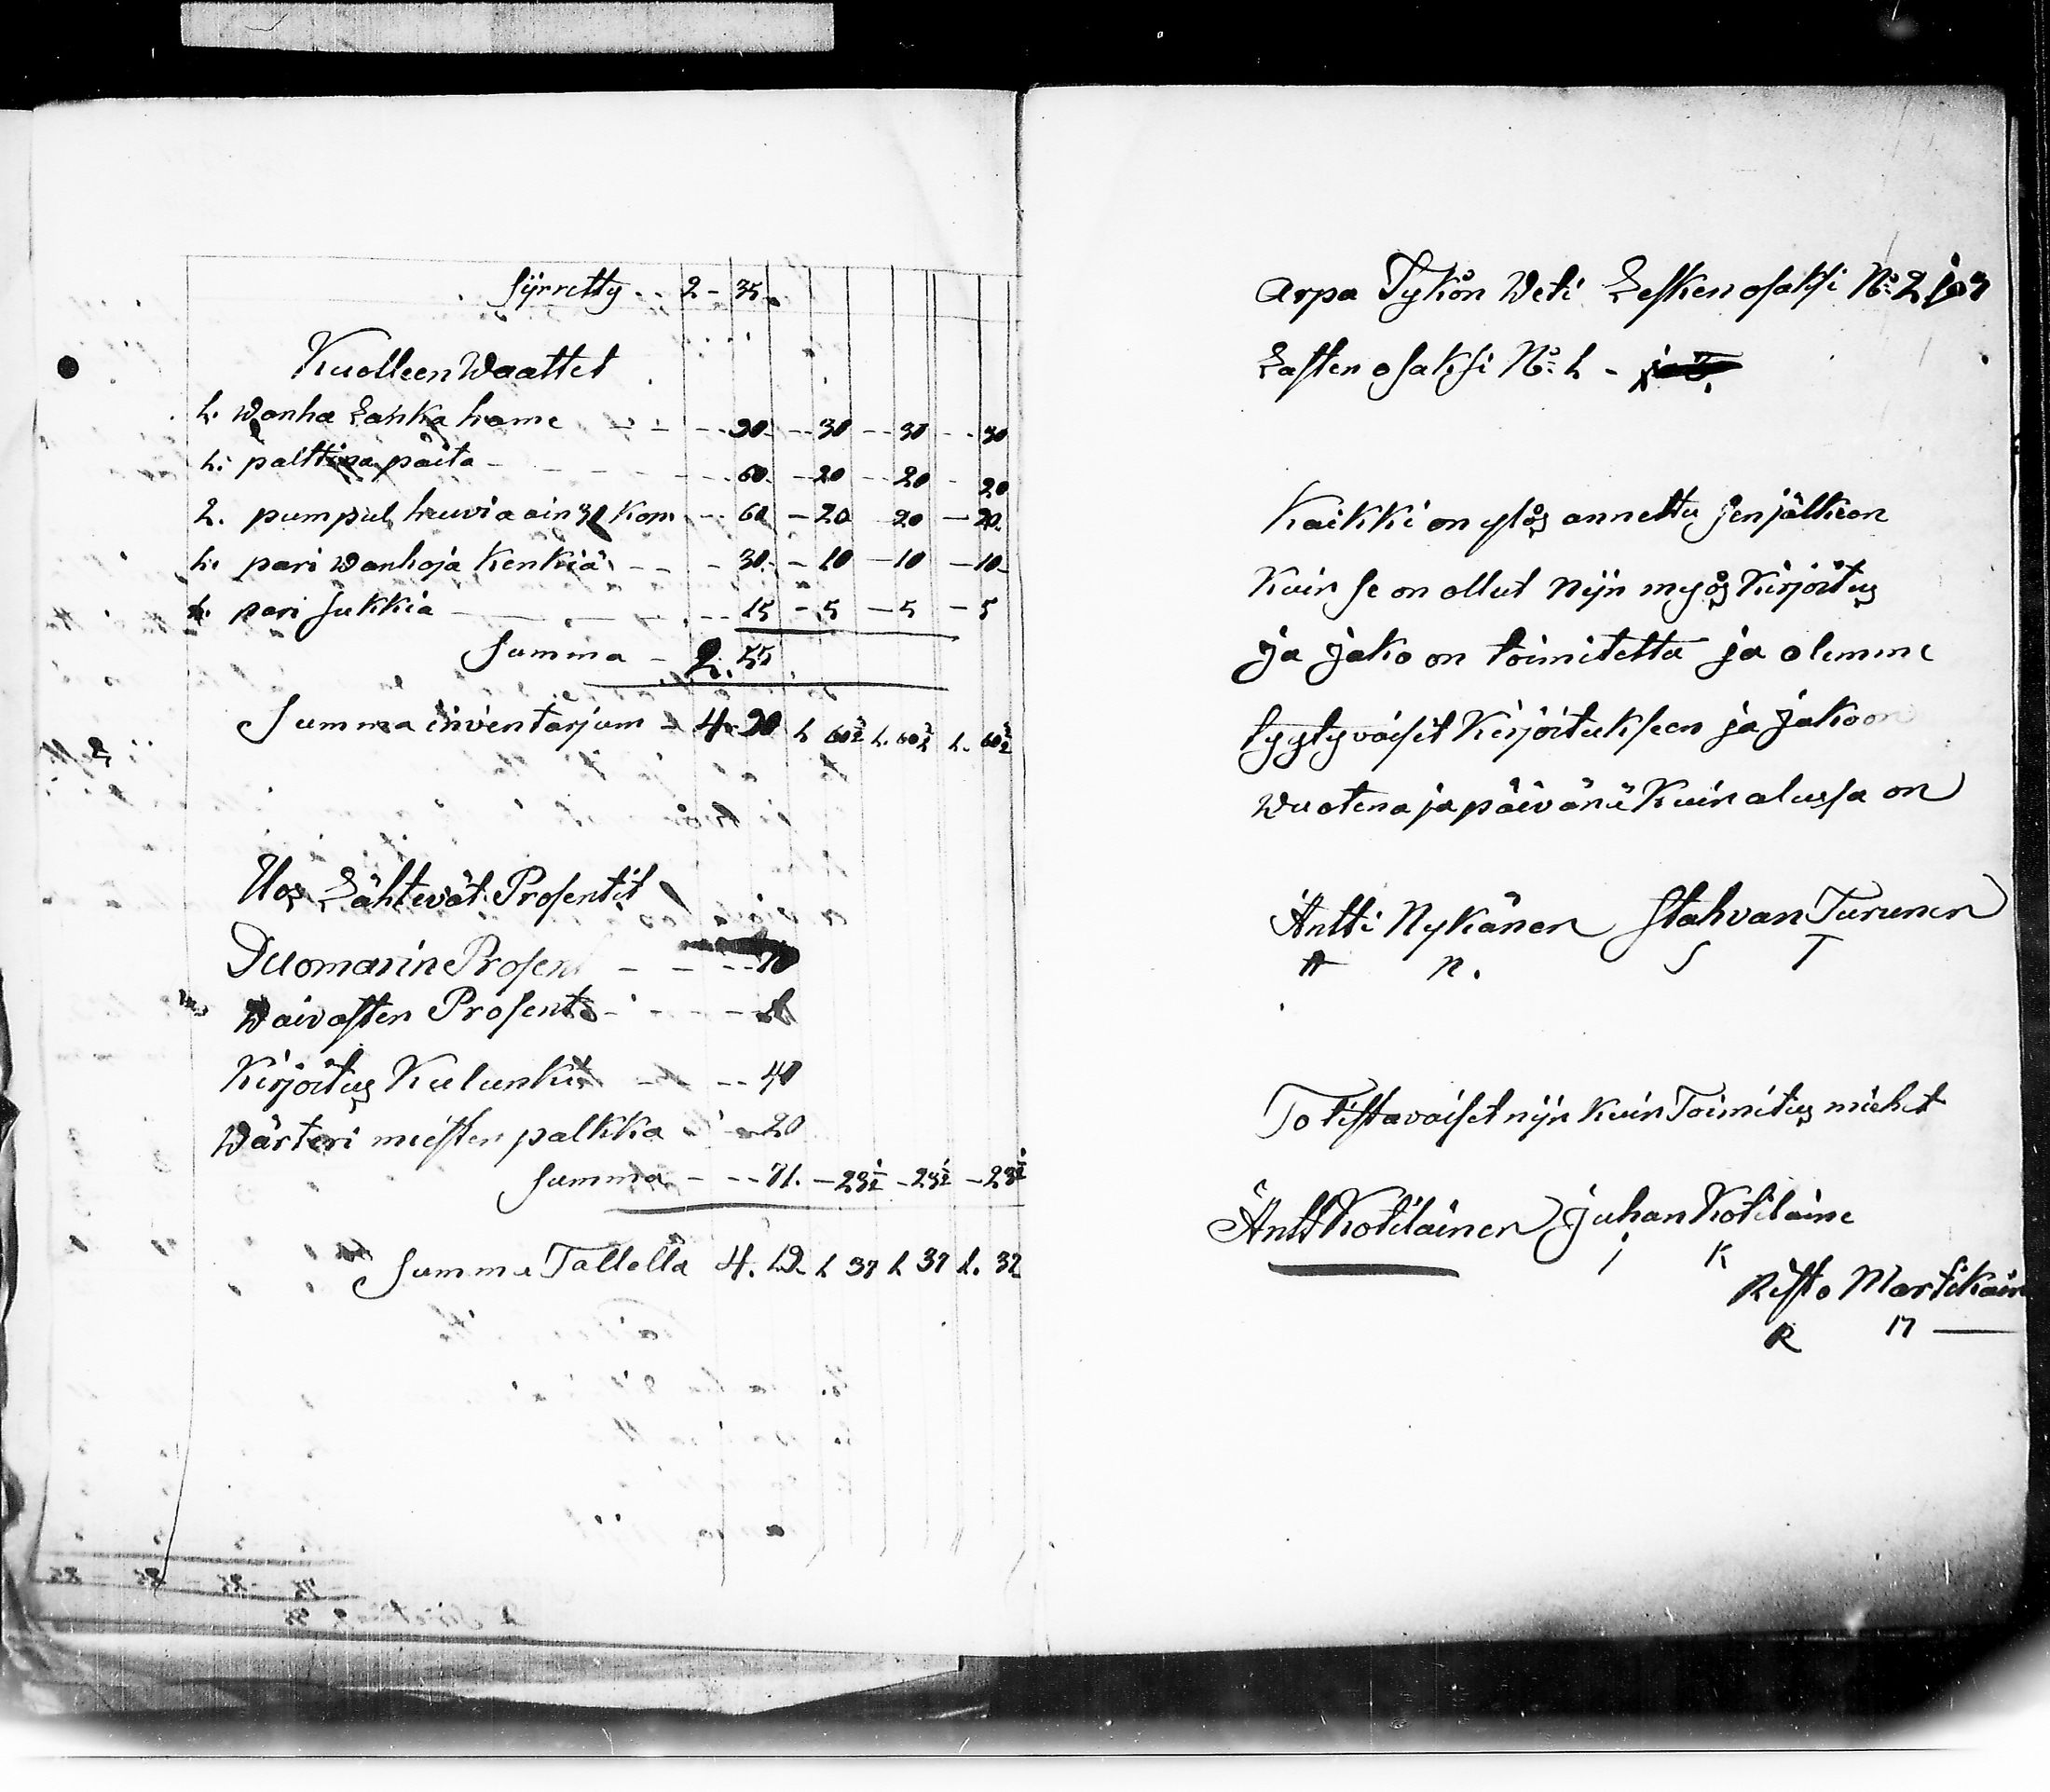 Syrretty - - 2 - 35
Kuolleen Waattet
1. Wanha Lanka hame - - - 90 - 30 - 30 - 30
1. palttina paita - - - 60 - 20 - 20 - 20
2. pumpul huivia ain 30 kop - 60 - 20 20 - 20
1. pari wanhoja Kenkiä - - - 30 - 10 - 10 - 10
1. pari sukkia - - - 15 - 5 - 5 - 5
Summa - 2. 55
Summa inventarjum - 4 - 90 1 60½ 1. 60½ 1. 60½
Uos Lähtevät Prosentit
Duomarin Prosent - - - 10
Waivasten Prosent - - - 1
Kirjoitus Kulunkit - - - 40
Wärteri miesten palkka - - 20
Summa - - - 71. - 23½ - 23½ - 23½
Summa Tallella 4. 19. 1 37 1 37 1. 37
Arpa Tykön Weti Lesken osaksi No 2 ja 3
Lasten osaksi No 1 -
Kaikki on ylös annettu sen jälkeen
Kuin se on ollut Nijn myös Kirjoitus
ja jako on toimitettu ja olemme
tyytyväiset Kirjoitukseen ja jakoon
Wuotena ja päivänä Kuin alussa on
Antti Nykänen Stahvan Turunen
A N. S T
Totistavaiset nijn kuin Toimitus miehet
Antt Kotilainen Juhan Kotilaine
J K
Risto Martikain
R M